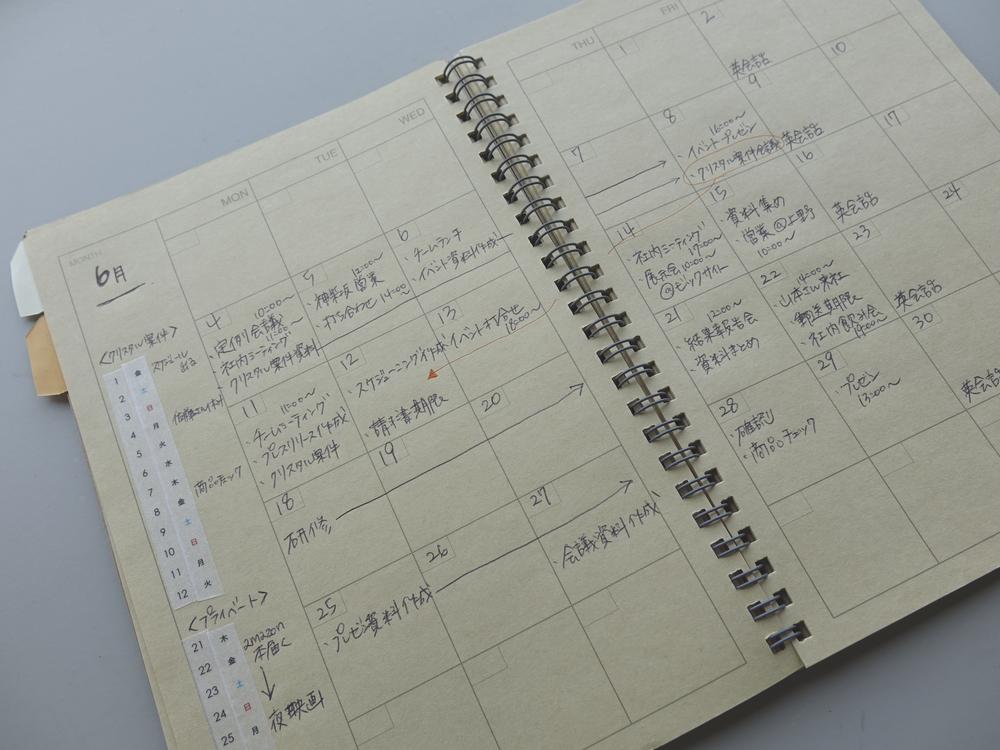 MONTH
6月
MON
TUE
WED
THU
FRI
1
2
4
10:00〜
・定例会議
11:00〜
・社内ミーティング
・クリスタル案件資料
5
12:00〜
・神楽坂営業
・打ち合わせ 14:00〜
6
・チームランチ
・イベント資料作成
7
8
16:00〜
・イベントプレゼン
・クリスタル案件会議
英会話
9
10
11
11:00〜
・チームミーティング
・プレスリリース作成
・クリスタル案件
12
・スケジューニング作成
・請求書期限
13
イベント打合せ
18:00〜
14
・社内ミーティング
17:00〜
・展示会 10:00〜
@ビックサイト
15
・資料集め
・営業@上野
10:00〜
英会話
16
17
18
研修
19
20
21
12:00〜
・結果報告会
・資料まとめ
22
14:00〜
・山本さん来社
・郵送期限
・社内飲み会
19:00〜
英会話
23
24
25
・プレゼン資料作成
26
27
・会議資料作成
28
・確認し
・商品チェック
29
プレゼン
13:00〜
英会話
30
英会話
<クリスタル案件>
1 金
2 土
3 日
4 月
5 火
6 水
7 木
8 金
9 土
10 日
11 月
12 火
商品チェック
<プライベート>
21 木
22 金
23 土
24 日
25 月
amazon
本届く
夜映画